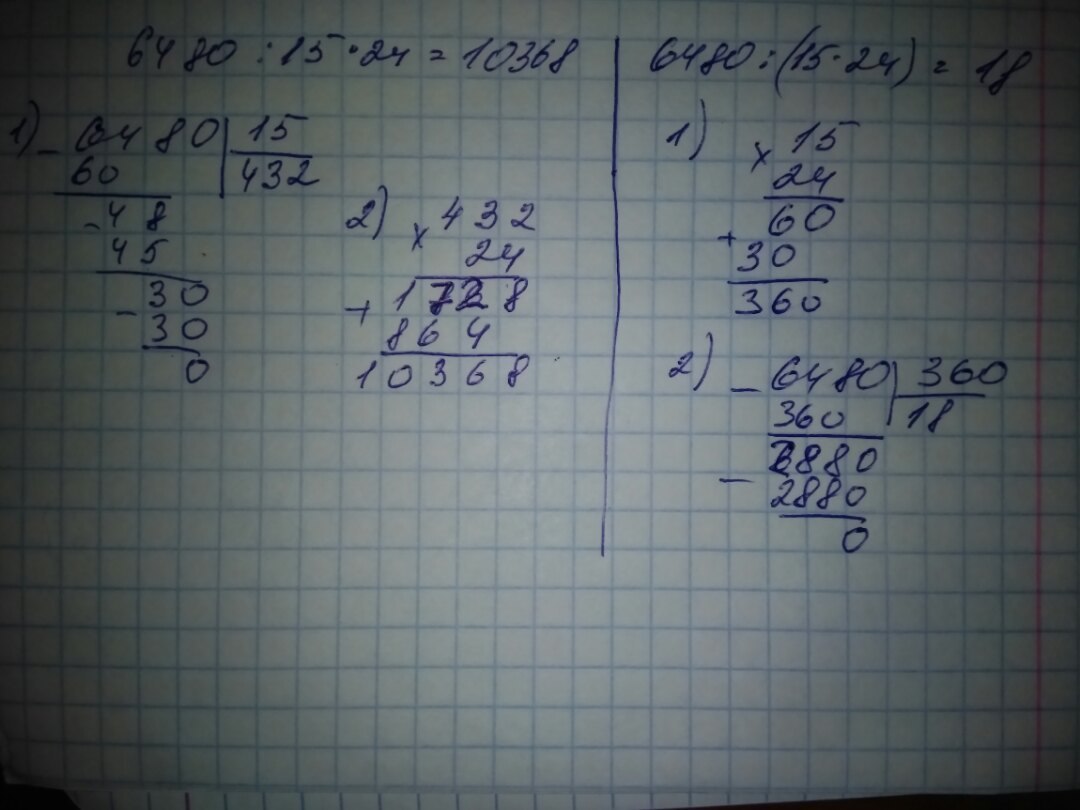 6480 : 15 · 24 = 10368
1) - 6480 | 15
60 | 432
- 48
45
- 30
30
0
2) × 432
24
+ 1728
864
10368
6480 : (15 · 24) = 18
1) × 15
24
60
+ 30
360
2) - 6480 | 360
360 | 18
- 2880
2880
0